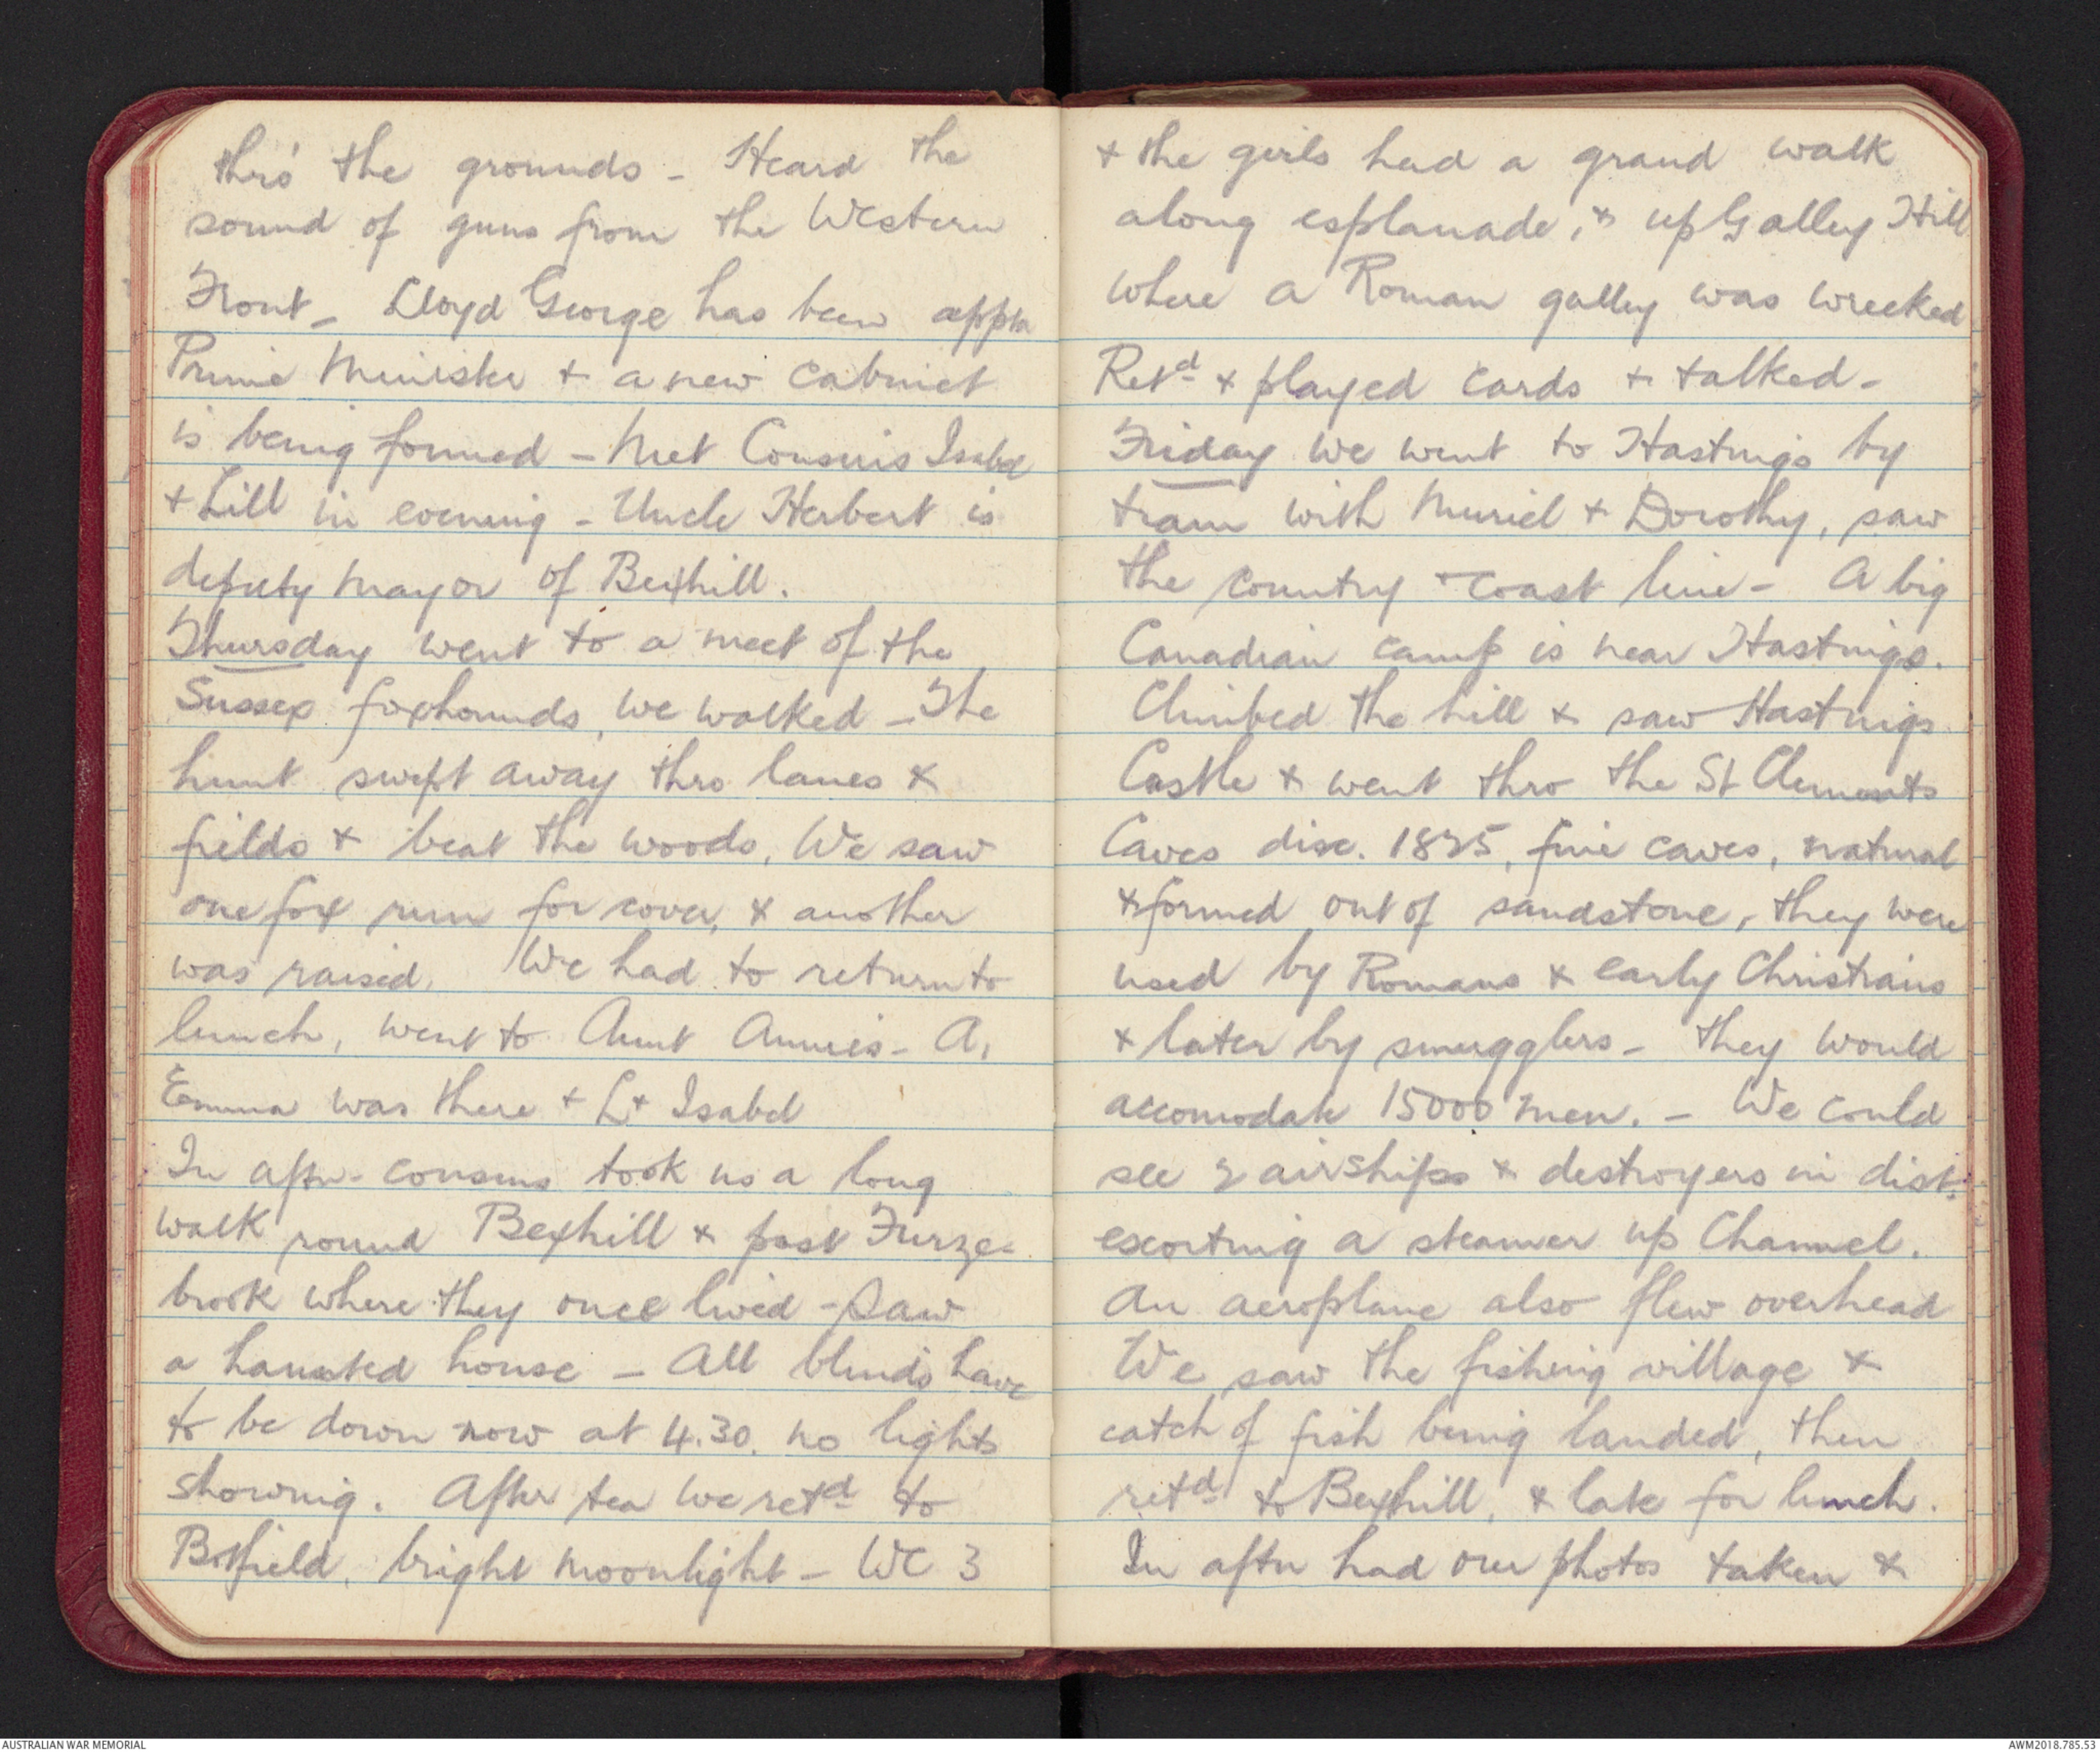 thro' the grounds - Heard the
sound of guns from the Western
Front - Lloyd George has been apptd
Prime Minister + a new cabinet
is being formed - Met Cousins Isabel
+ Lill in evening - Uncle Herbert is
deputy mayor of Bexhill.
Thursday went to a meet of the
Sussex foxhounds, we walked - The
hunt swept away thro lanes +
fields + beat the woods. We saw
one fox run for cover, + another
was raised. We had to return to
lunch, went to Aunt Annies - A.
Emma was there + L + Isabel
In aftn - cousins took us a long
walk round Bexhill + past Furze-
brook where they once lived - Saw
a haunted house - All blinds have
to be down now at 4.30. no lights
showing. After tea we retd to
Bofield, bright moonlight - We 3
+ the girls had a grand walk
along esplanade, + up Galley Hill
where a Roman galley was wrecked
Retd + played cards + talked -
Friday We went to Hastings by
tram with Muriel + Dorothy, saw
the country + coast line - A big
Canadian camp is near Hastings.
Climbed the hill + saw Hastings
Castle + went thro the St Clements
Caves disc. 1825, fine caves, natural
+ formed out of sandstone, they were
used by Romans + early Christians
+ later by smugglers - they would
accomodate 15000 men. - We could
see 2 airships + destroyers in dist.
escorting a steamer up Channel.
An aeroplane also flew overhead
We saw the fishing village +
catch of fish being landed, then
retd to Bexhill, + late for lunch.
In aftn had our photos taken +
AUSTRALIAN WAR MEMORIAL
AWM2018.785.53